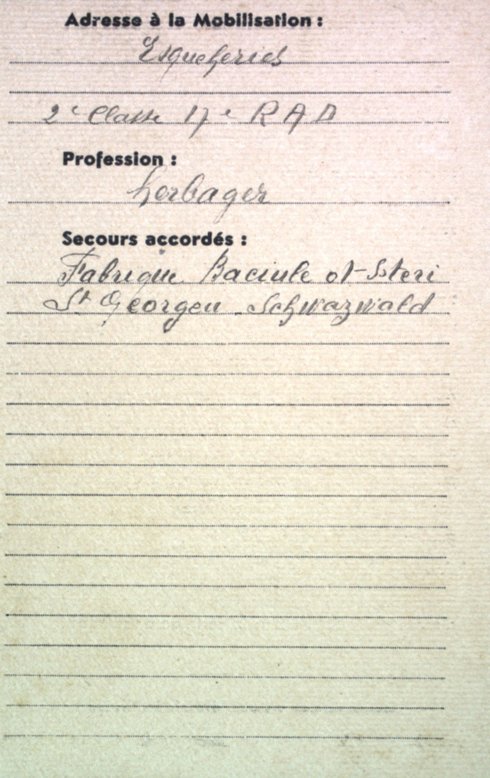 Adresse à la Mobilisation :
Esqueheries
2e Classe 17e R A D
Profession :
herbager
Secours accordés :
Fabrique
St Georgen Schwarzwald